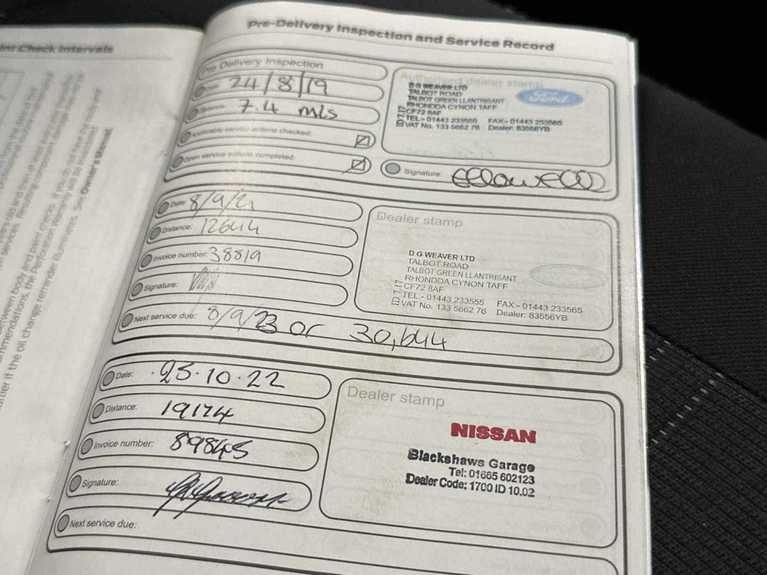 int Check Intervals
Pre-Delivery Inspection and Service Record
Pre Delivery Inspection
24/8/19
7.4 mls
Applicable service actions checked:
Open service actions completed:
Authorised dealer stamp
D G WEAVER LTD
TALBOT ROAD
TALBOT GREEN LLANTRISANT
RHONDDA CYNON TAFF
CF72 8AF
TEL - 01443 233555 FAX - 01443 233565
VAT No. 133 5662 76 Dealer: 83556YB
Ford
Signature:
Date: 8/9/21
Distance: 12644
Invoice number: 38819
Signature:
Next service due: 8/9/23 or 30,644
Dealer stamp
D G WEAVER LTD
TALBOT ROAD
TALBOT GREEN LLANTRISANT
RHONDDA CYNON TAFF
CF72 8AF
TEL - 01443 233555 FAX - 01443 233565
VAT No. 133 5662 76 Dealer: 83556YB
Date: 25.10.22
Distance: 19174
Invoice number: 89845
Signature:
Next service due:
Dealer stamp
NISSAN
Blackshaws Garage
Tel: 01665 602123
Dealer Code: 1700 ID 10.02